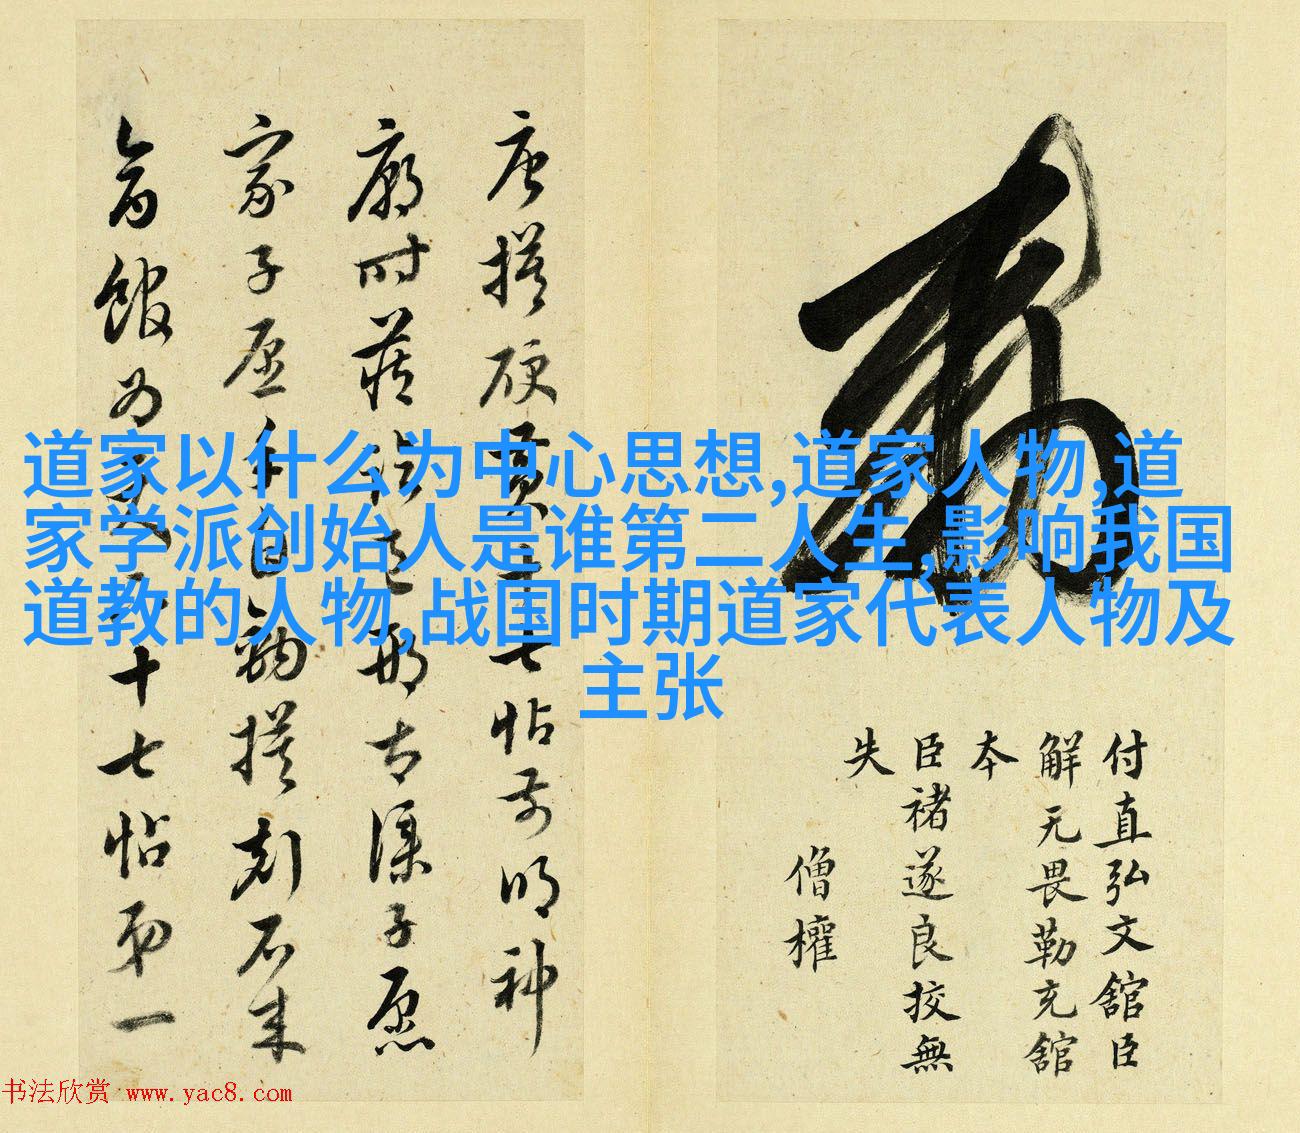 道家以什么为中心思想,道家人物,道
家学派创始人是谁第二人生,影响我国
道教的人物,战国时期道家代表人物及
主张
敕
付直弘文馆臣
解无畏勒充馆
本
臣褚遂良挍無
失
僧權
唐摸硬黄十七帖前明神
廟时蔵
邢太僕子愿
家子愿手自鉤摸刻石来
禽館为
十七帖第一
书法欣赏 www.yac8.com